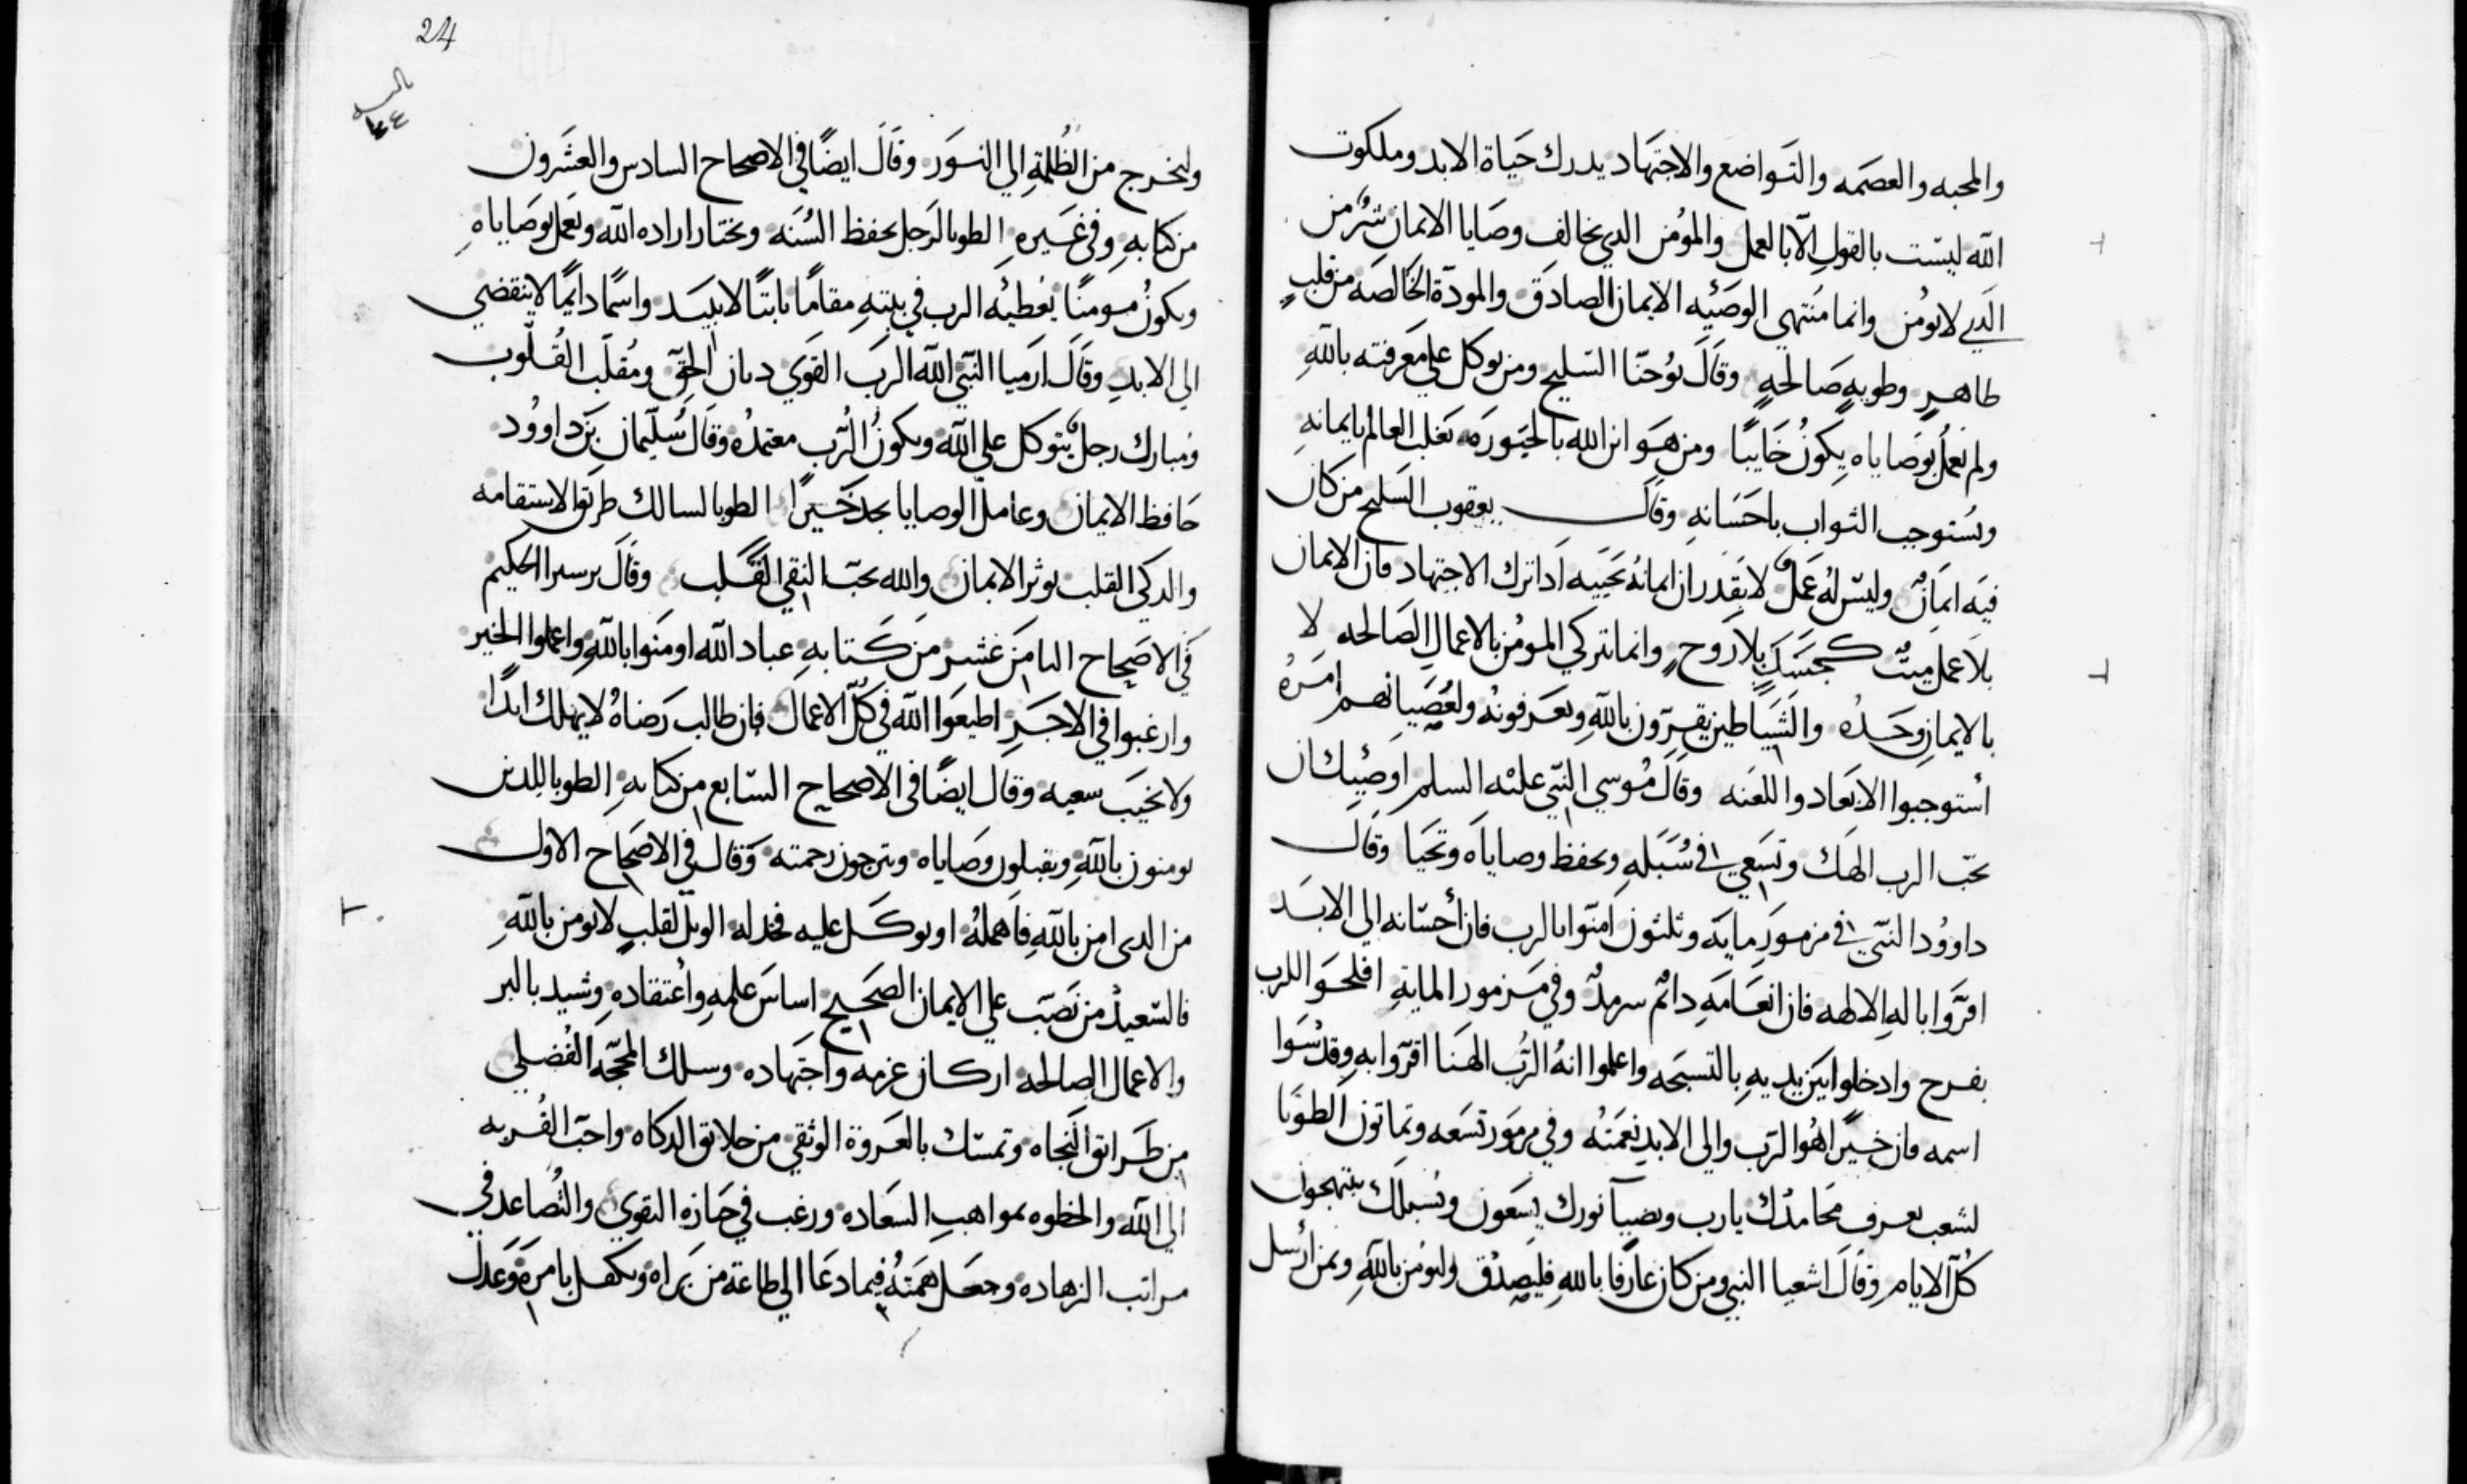 والمحبه والعصمه والتواضع والاجتهاد يدرك حياة الابد وملكوت
الله ليست بالقول الا بالعمل والمؤمن الدي يخالف وصايا الايمان شر من
الدي لا يومن وانما منتهي الوصيه الايمان الصادق والمودة الخالصه من قلب
طاهر وطويه صالحه وقال يوحنا السليح ومن يوكل علي معرفته بالله
ولم يعمل بوصاياه يكون خايبا ومن هو ابن الله بالحيوره يغلب العالم بايمانه
ويستوجب الثواب باحسانه وقال يعقوب السليح من كان
فيه ايمان وليس له عمل لا يقدر ان ايمانه يحييه ادا ترك الاجتهاد فان الايمان
بلا عمل ميت كجسد بلا روح وانما تزكي المومن بالاعمال الصالحه لا
بالايمان وحده والشياطين يقرون بالله ويعرفونه ولعصيانهم امره
أستوجبوا الابعاد واللعنه وقال موسي النبي عليه السلم اوصيك ان
تحب الرب الهك وتسعي في سبله وتحفظ وصاياه وتحيا وقال
داوود النبي في مزمور مايه وثلثون امنوا بالرب فان أحسانه الي الابد
اقروا باله الالهه فان انعامه دائم سرمد وفي مزمور الماية افلحوا للرب
بفرح وادخلوا بين يديه بالتسبحه واعلموا انه الرب الهنا اقروا به وقدسوا
اسمه فان خيرا هو الرب والي الابد نعمته وفي مزمور تسعه وثمانون الطوبا
لشعب يعرف محامدك يارب وبضيآ نورك يسعون وبسبلك يبتهجون
كل الايام وقال اشعيا النبي ومن كان عارفا بالله فليصدق وليومن بالله وبمن أرسل
24
ولنخرج من الظلمة الي النور وقال ايضا في الاصحاح السادس والعشرون
من كتابه وفي غيره الطوبا لرجل يحفظ السنه ويختار اراده الله ويعمل بوصاياه
ويكون مومنا يعطيه الرب في بيته مقاما ثابتا لا يبيد واسما دايما لا ينقضي
الي الابد وقال ارميا النبي الله الرب القوي ديان الحق ومقلب القلوب
ومبارك رجل يتوكل علي الله ويكون الرب معتمده وقال سليمان بن داوود
حافظ الايمان وعامل الوصايا يجد خيرا الطوبا لسالك طريق الاستقامه
والدكي القلب يوثر الايمان والله يحب النقي القلب وقال برسيرا الحكيم
في الاصحاح الثامن عشر من كتابه عباد الله اومنوا بالله واعملوا الخير
وارغبوا في الاجر اطيعوا الله في كل الاعمال فان طالب رضاه لا يهلك ابدا
ولا يخيب سعيه وقال ايضا في الاصحاح السابع من كتابه الطوبا للدين
يومنون بالله ويقبلون وصاياه ويترجون رحمته وقال في الاصحاح الاول
من الدي امن بالله فاهمله او يوكل عليه فخدله الويل لقلب لا يومن بالله
فالسعيد من نصب علي الايمان الصحيح اساس علمه واعتقاده وشيد بالبر
والاعمال الصالحه اركان عزمه واجتهاده وسلك المحجه الفضلي
من طرايق النجاه وتمسك بالعروة الوثقي من خلايق الدكاه واحب القربه
الي الله والحظوه بمواهب السعاده ورغب في حيازه التقوي والتصاعد في
مراتب الزهاده وجعل همته فيما دعا الي طاعة من براه وتكفل بامره وعدل